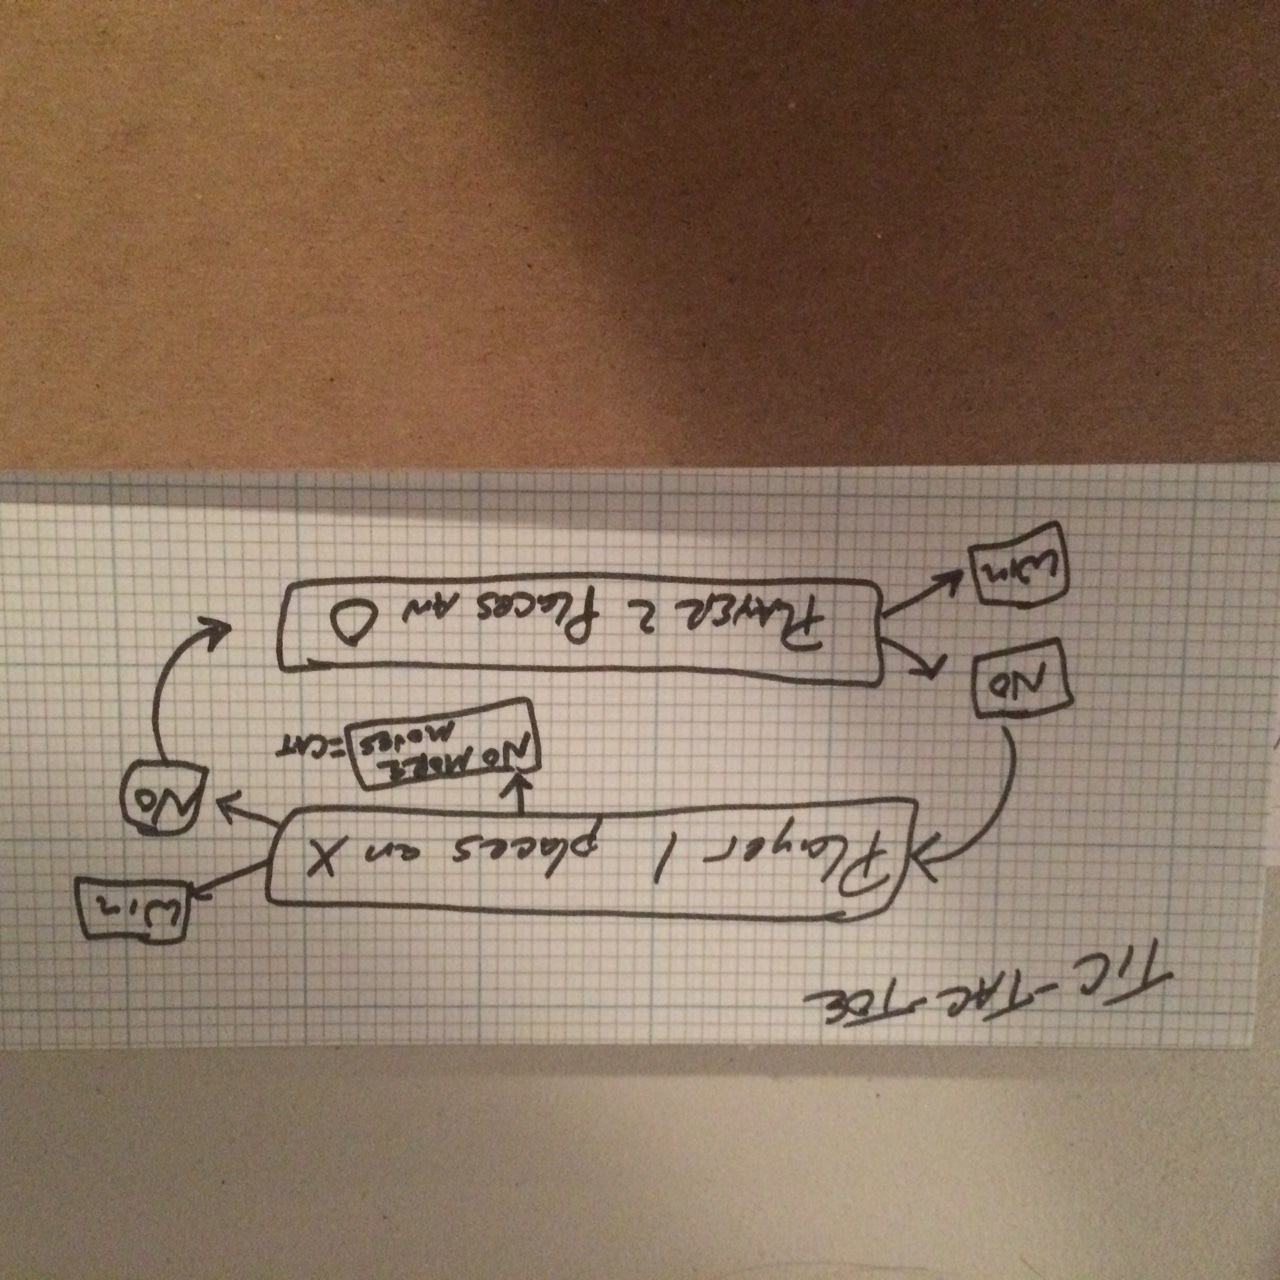 TIC-TAC-TOE
Player 1 places an X
Win
NO
NO MORE
MOVES = CAT
NO
PLAYER 2 PLACES AN O
Win